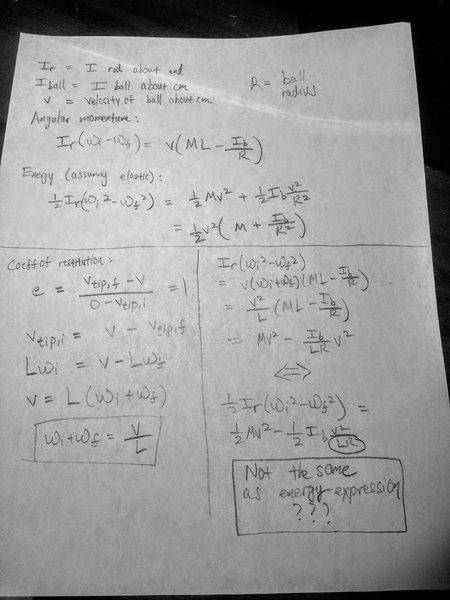 Ir = I rod about end
Iball = I ball about cm
v = velocity of ball about cm
R = ball radius
Angular momentum:
Ir(ωi-ωf) = v(ML - Ib/R)
Energy (assuming elastic):
½Ir(ωi²-ωf²) = ½Mv² + ½Ib v²/R²
= ½v²(M + Ib/R²)
Coeff of restitution:
e = (vtip,f - v)/(0 - vtip,i) = 1
vtip,i = v - vtip,f
Lωi = v - Lωf
v = L(ωi+ωf)
ωi+ωf = v/L
Ir(ωi²-ωf²)
= v(ωi+ωf)(ML - Ib/R)
= v²/L (ML - Ib/R)
= Mv² - Ib/LR v²
⇔
½Ir(ωi²-ωf²) =
½Mv² - ½Ib v²/LR
Not the same
as energy expression
???